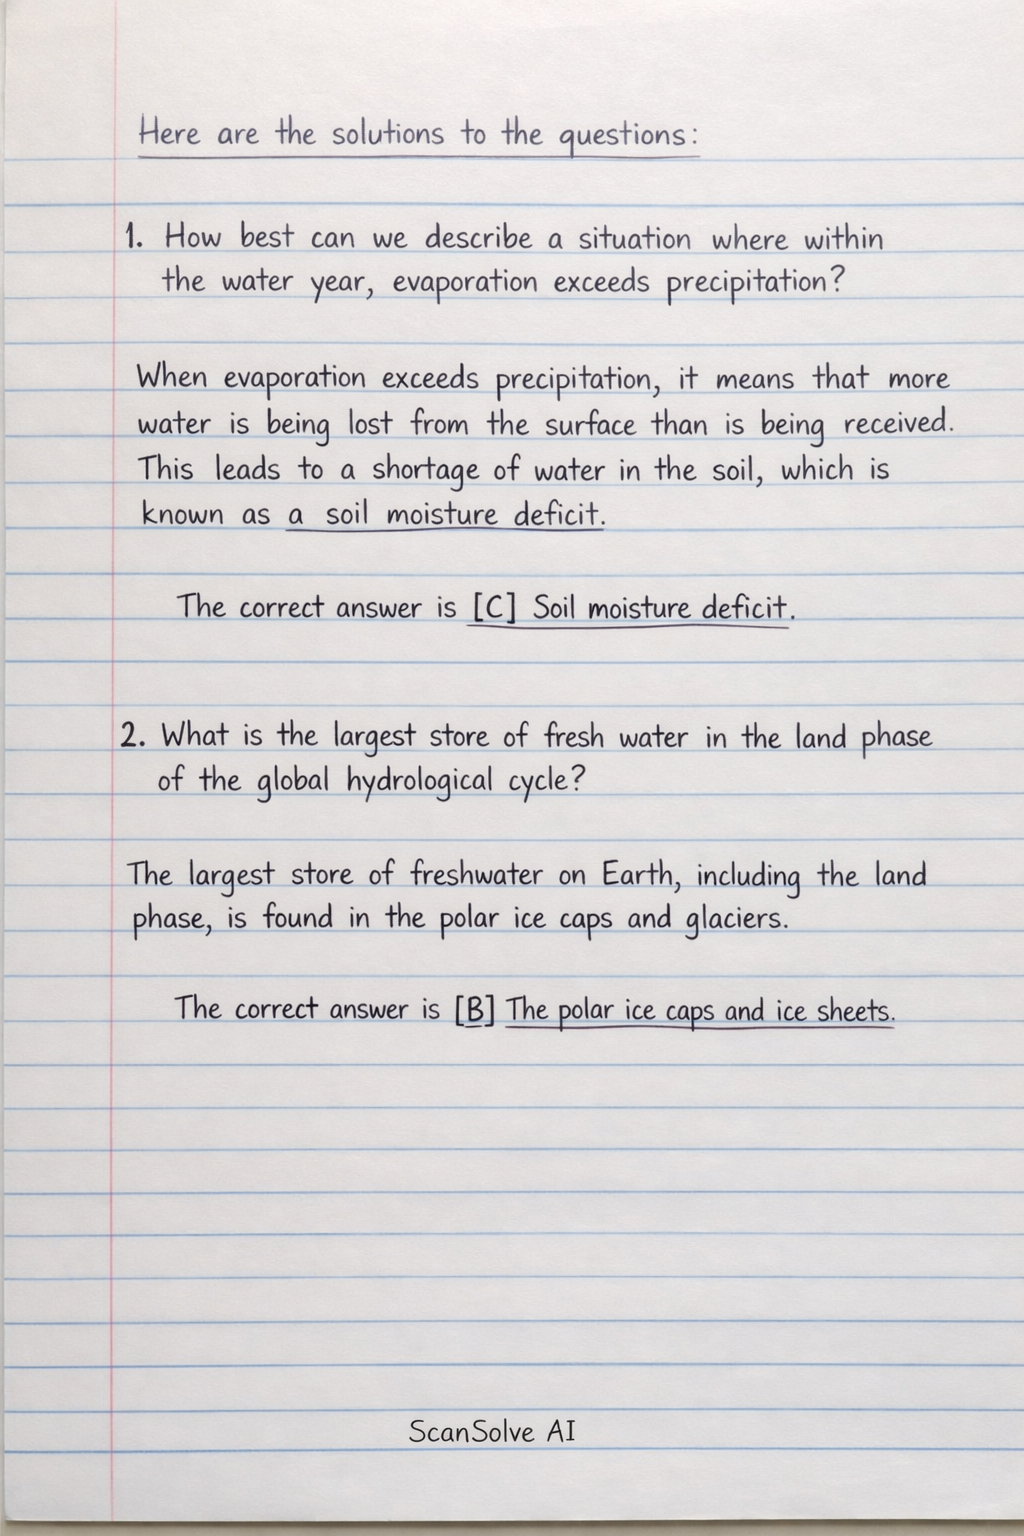 Here are the solutions to the questions:
1. How best can we describe a situation where within
the water year, evaporation exceeds precipitation?
When evaporation exceeds precipitation, it means that more
water is being lost from the surface than is being received.
This leads to a shortage of water in the soil, which is
known as a soil moisture deficit.
The correct answer is [C] Soil moisture deficit.
2. What is the largest store of fresh water in the land phase
of the global hydrological cycle?
The largest store of freshwater on Earth, including the land
phase, is found in the polar ice caps and glaciers.
The correct answer is [B] The polar ice caps and ice sheets.
ScanSolve AI